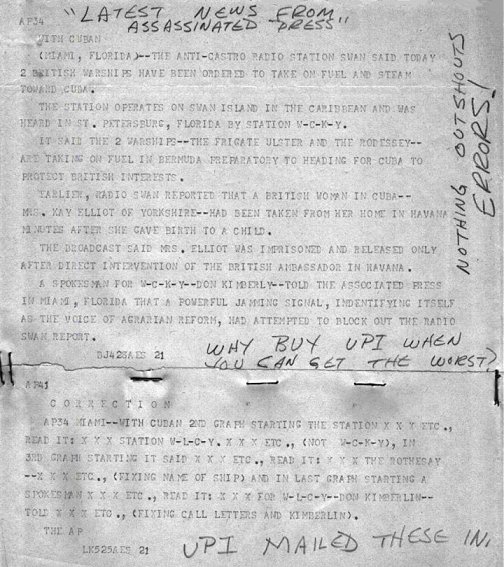 "LATEST NEWS FROM
ASSASSINATED PRESS"
AP34
WITH CUBAN
(MIAMI, FLORIDA)--THE ANTI-CASTRO RADIO STATION SWAN SAID TODAY
2 BRITISH WARSHIPS HAVE BEEN ORDERED TO TAKE ON FUEL AND STEAM
TOWARD CUBA.
THE STATION OPERATES ON SWAN ISLAND IN THE CARIBBEAN AND WAS
HEARD IN ST. PETERSBURG, FLORIDA BY STATION W-C-K-Y.
IT SAID THE 2 WARSHIPS--THE FRIGATE ULSTER AND THE RODESSEY--
ARE TAKING ON FUEL IN BERMUDA PREPARATORY TO HEADING FOR CUBA TO
PROTECT BRITISH INTERESTS.
EARLIER, RADIO SWAN REPORTED THAT A BRITISH WOMAN IN CUBA--
MRS. KAY ELLIOT OF YORKSHIRE--HAD BEEN TAKEN FROM HER HOME IN HAVANA
MINUTES AFTER SHE GAVE BIRTH TO A CHILD.
THE BROADCAST SAID MRS. ELLIOT WAS IMPRISONED AND RELEASED ONLY
AFTER DIRECT INTERVENTION OF THE BRITISH AMBASSADOR IN HAVANA.
A SPOKESMAN FOR W-C-K-Y--DON KIMBERLY--TOLD THE ASSOCIATED PRESS
IN MIAMI, FLORIDA THAT A POWERFUL JAMMING SIGNAL, INDENTIFYING ITSELF
AS THE VOICE OF AGRARIAN REFORM, HAD ATTEMPTED TO BLOCK OUT THE RADIO
SWAN REPORT.
BJ428AES 21
NOTHING OUTSHOUTS
ERRORS!
WHY BUY UPI WHEN
YOU CAN GET THE WORST?
AP41
CORRECTION
AP34 MIAMI--WITH CUBAN 2ND GRAPH STARTING THE STATION X X X ETC.,
READ IT: X X X STATION W-L-C-Y. X X X ETC., (NOT W-C-K-Y), IN
3RD GRAPH STARTING IT SAID X X X ETC., READ IT: X X X THE ROTHESAY
--X X X ETC., (FIXING NAME OF SHIP) AND IN LAST GRAPH STARTING A
SPOKESMAN X X X ETC., READ IT: X X X FOR W-L-C-Y--DON KIMBERLIN--
TOLD X X X ETC., (FIXING CALL LETTERS AND KIMBERLIN).
THE AP
LK525AES 21
UPI MAILED THESE IN.